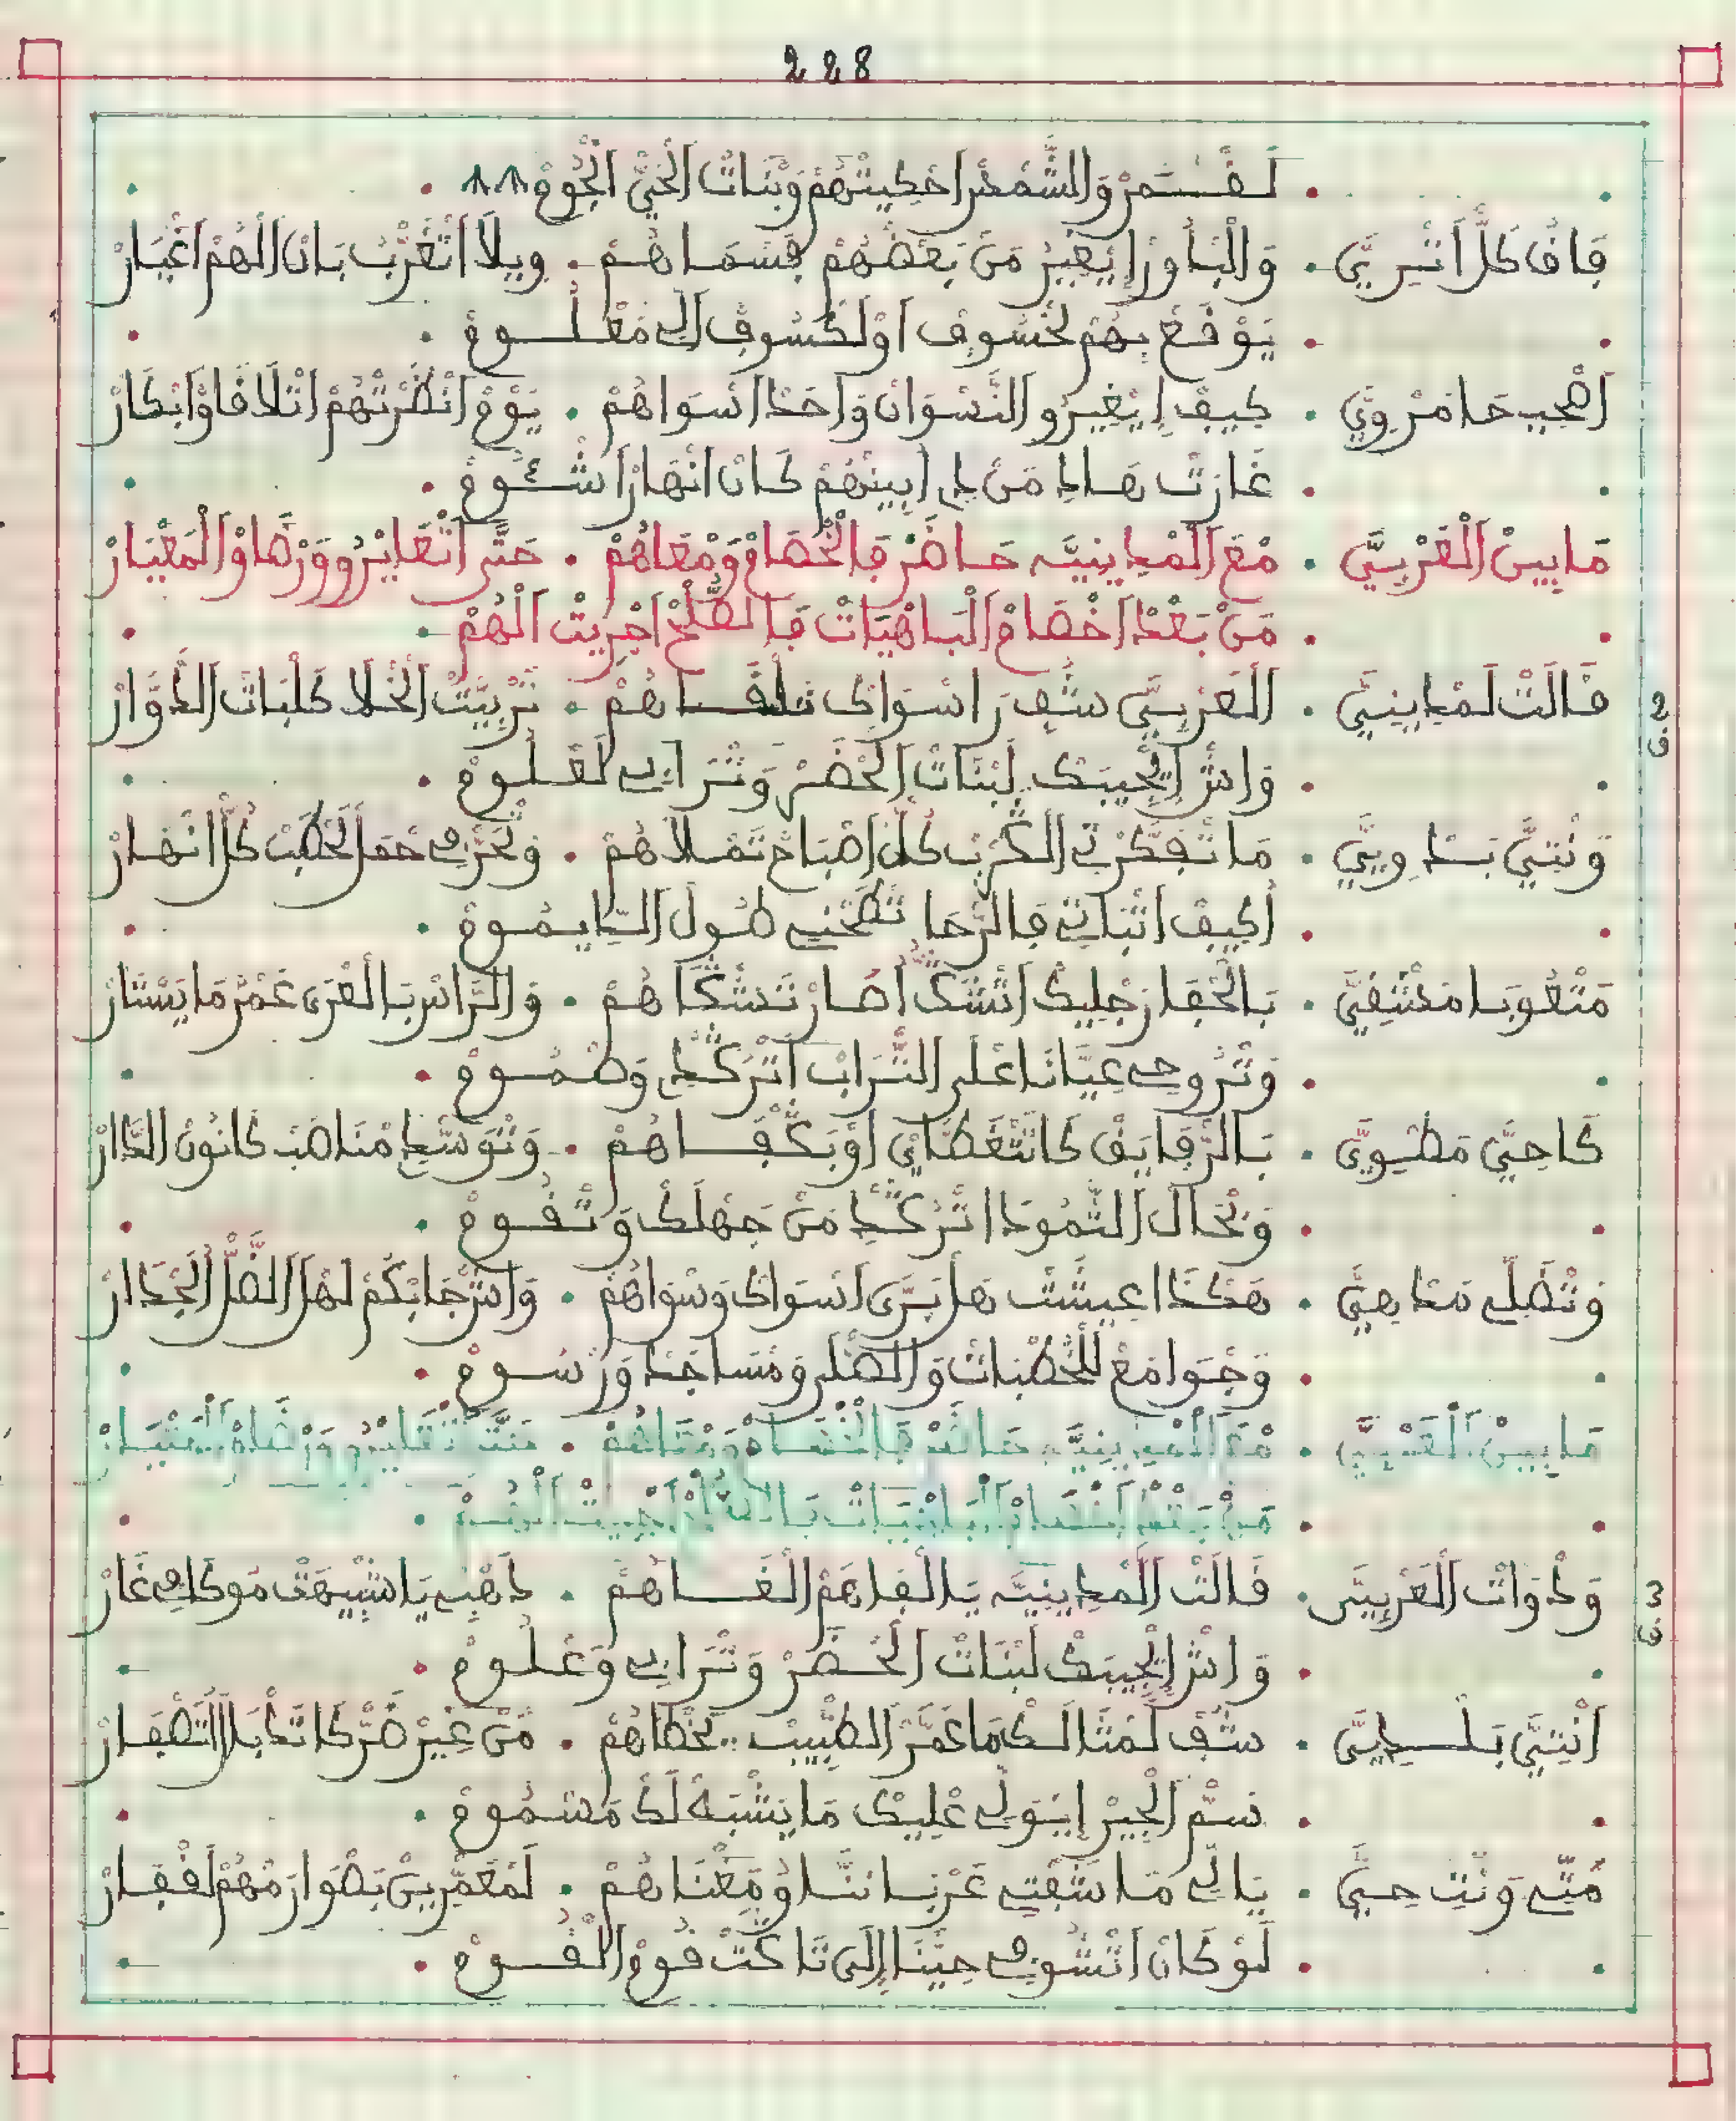 228
لَقْمَرْ وَالشَّمْسْ اَحْكِيتْهُمْ وَبْنَاتْ اَلْحَيّْ اَنْجُومْ
فَاقْ كَلّْ اَتْرِيَّ . وَالْبَاوْرْ اِيغِيرْ مَنْ بَعْضْهُمْ فِسْمَاهُمْ . وِيلاَ اَتْغَرّْبْ بَانْ اَلْهُمْ اَغْيَارْ
يَوْقَعْ بِهُمْ لَخْسُوفْ اَوْ لَكْسُوفْ اَلِي مَعْلُومْ
اَصْحِيبْ حَامَرْوِيَّ . كِيفْ اِيْغِيرُو النَّسْوَانْ وَاحْدَا اَسْوَاهُمْ . يَوْمْ اَنْظَرْتْهُمْ اَتْلَاقَاوْ اَبْكَارْ
غَارَتْ هَادِ مَنْ دِ اَبِينْهُمْ كَانْ اَنْهَارْ اَشْئُومْ
مَابِينْ اَلْعَرْبِيَّ . مْعَ اَلْمْدِينِيَّه حَاضَرْ فَالْخْصَامْ وَمْعَاهُمْ . حَتَّى اَتْعَايْرُو وَرْضَاوْ اَلْمَعْيَارْ
مَنْ بَعْدْ اَخْصَامْ اَلْبَاهْيَاتْ فَالصَّلْحْ اَجْرِيتْ اَلْهُمْ
2 ق
قَالَتْ لَمْدِينِيَّ . اَلْعَرْبِيَّ شُفِ رَاسْوَاكْ تَلْقَاهُمْ . تَرْبِيَّتْ اَلْخْلَا كَلْبَاتْ اَلدُّوَّارْ
وَاشْ اِيْجِيبَكْ لَبْنَاتْ اَلْحْضَرْ وَتْرَابِي لَعْلُومْ
وَنْتِيَّ بَدْوِيَّ . مَا تْفَكّْرْتِي اَلْكْرَبْ كُلّْ اَصْبَاحْ تَمْلاَهُمْ . وَتْحَزّْمِي حْمَلْ لَحْطَبْ كُلّْ اَنْهَارْ
اُكِيفْ اَتْبَاتِي فَالرّْحَا تَطْحْنِي طُولْ اَلدَّيْمُومْ
مَتْعُوبَا مَشْقِيَّ . بَالْحْفَا رَجْلِيكْ اَتْشَكّْ اُصَارْ تَشْكَاهُمْ . وَالرَّاسْ بَالْعْرَى عَمْرْ مَا يَسْتَارْ
وَتْرُوحِي عِيَّانَا عْلَى التّْرَابْ اَتْرَكْدِ وَطْمُومْ
كَاحِيَّ مَطْوِيَّ . بَالرّْقَايَقْ كَاتَتْغَطَّايْ اَوْ بَكْفَاهُمْ . وَتْوَسّْدِ مْنَاصَبْ كَانُونْ الدَّارْ
وَتْحَالْ النَّمُودَا تَرْكْدِ مَنْ جَهْلَكْ وَتْقُومْ
وَتْضَلِّي مَدْهِيَّ . هَكْذَا عِيشْتْ هَلْ بَرَّى اَسْوَاكْ وَسْوَاهُمْ . وَاشْ جَابْكُمْ لَهْلْ اَلظّْلّْ اَلْجْدَارْ
وَجْوَامَعْ لَلْخْطْبَاتْ وَالصّْلَى وَمْسَاجْدْ وَرْسُومْ
مَابِينْ اَلْعَرْبِيَّ . مْعَ اَلْمْدِينِيَّه حَاضَرْ فَالْخْصَامْ وَمْعَاهُمْ . حَتَّى اَتْعَايْرُو وَرْضَاوْ اَلْمَعْيَارْ
مَنْ بَعْدْ اَخْصَامْ اَلْبَاهْيَاتْ فَالصَّلْحْ اَجْرِيتْ اَلْهُمْ
3 ق
وَدْوَاتْ اَلْعَرْبِيَّ . قَالَتْ اَلْمْدِينِيَّه يَالْفَاهَمْ اَلْغَاهُمْ . دْهْبِي يَا شْبِيهَةْ مُوكَا فِي غَارْ
وَاشْ اِيْجِيبَكْ لَبْنَاتْ اَلْحْضَرْ وَتْرَابِي وَعْلُومْ
اَنْتِيَّ بَلْدِيَّ . شُفْ لَمْثَالَكْ مَا عَمَّرْ اَلطّْبِيبْ يَخْطَاهُمْ . مَنْ غِيرْ ضَرّْ كَاتَدْبَلْ اَلتّْصْفَارْ
سَمّْ اَلْجِيرْ اِيْوَلِّي عْلِيكْ مَا يَشْبَهْ لَكْ مَشْمُومْ
مُتِّي وَنْتِ حِيَّ . يَالِّي مَا شَفْتِي عَرْبَانَّا وْ مَغْنَاهُمْ . لَمْعَمّْرِينْ بَصْوَارَمْهُمْ لَقْفَارْ
لَوْ كَانْ اَتْشُوفِي حِيّْنَا اِلَى نَاكَتْ قُومْ اَلْقُومْ